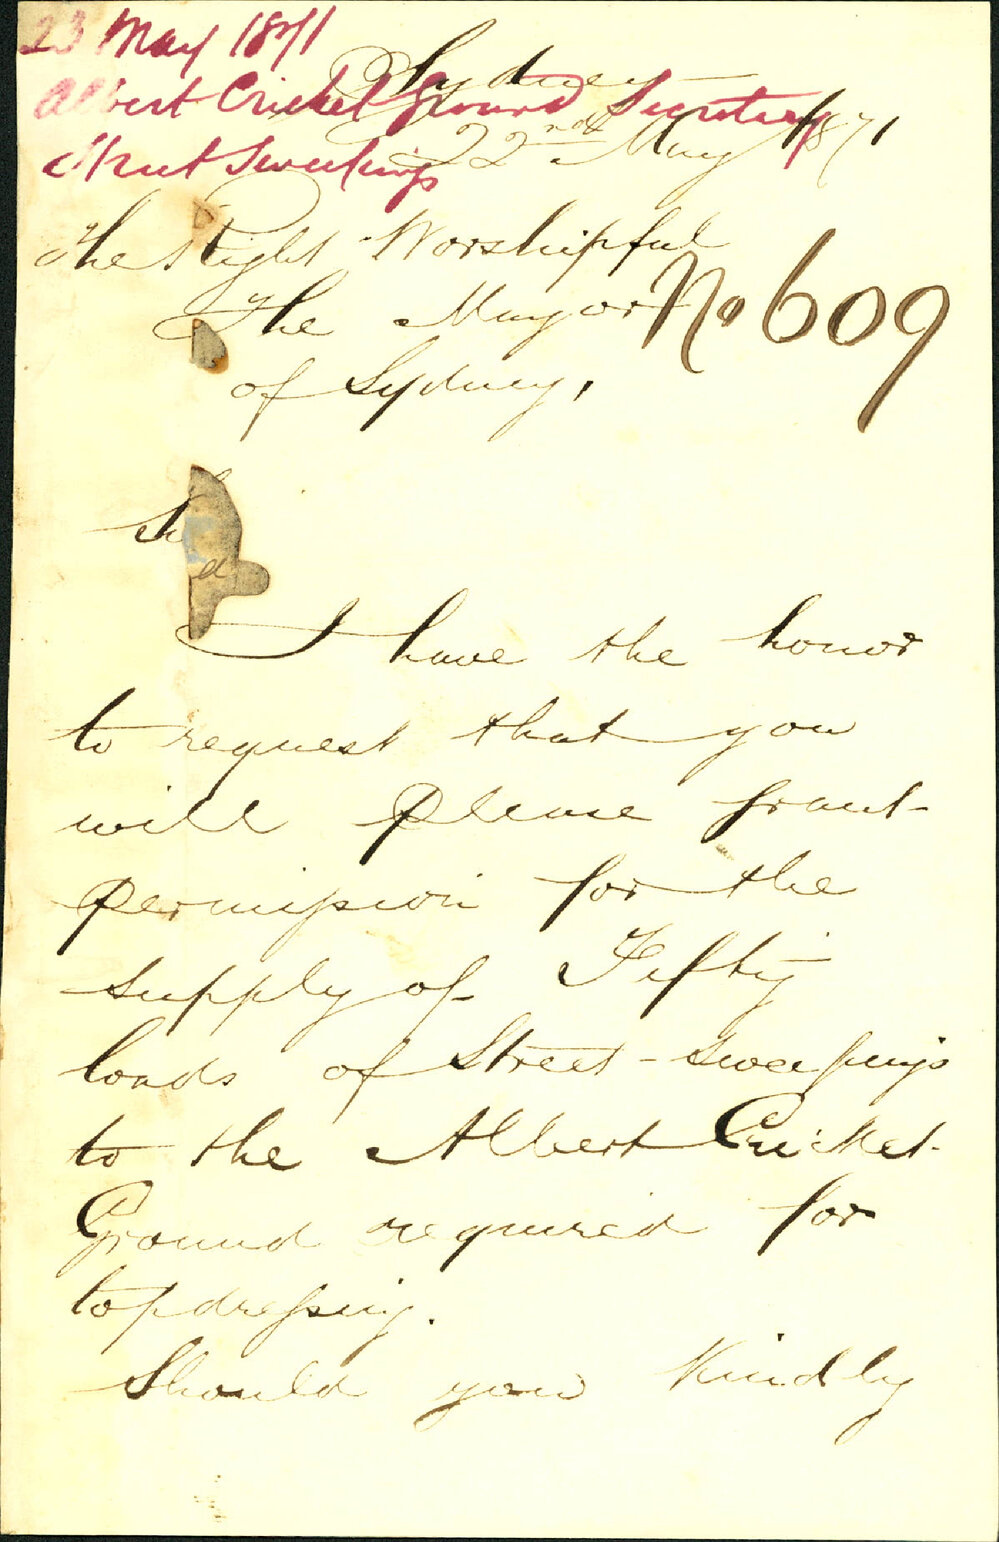 23 May 1871
Albert Cricket Ground Secretary
Street Sweepings
Sydney
22nd May 1871
The Right Worshipful
The Mayor
of Sydney,
No 609
I have the honor
to request that you
will please grant
permission for the
supply of Fifty
loads of Street-sweepings
to the Albert Cricket
Ground required for
topdressing.
Should you Kindly